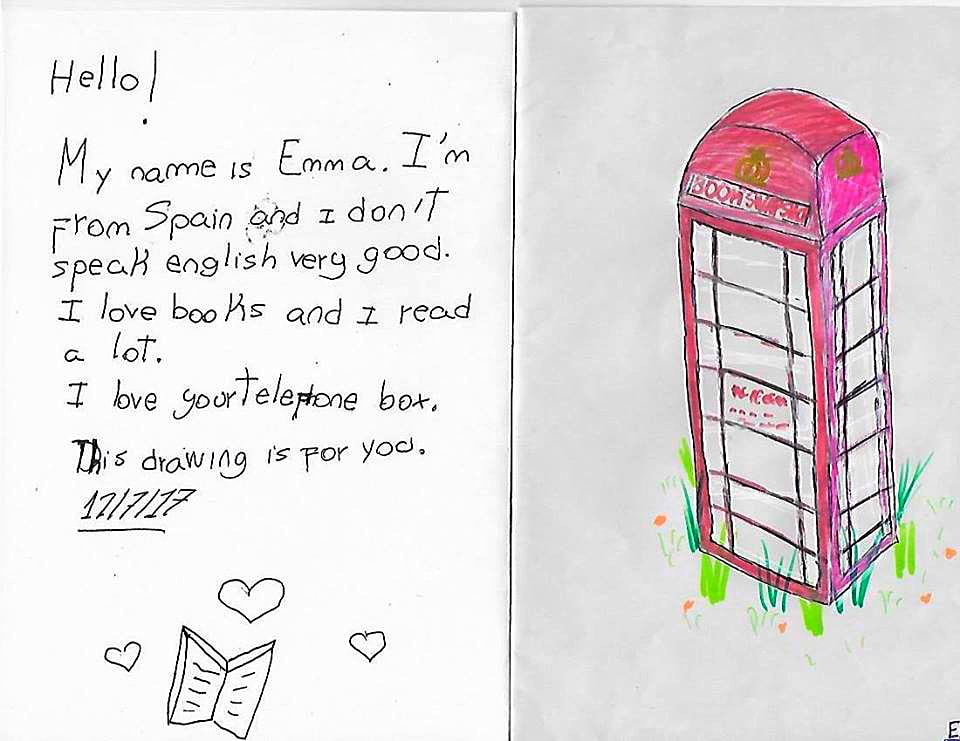 Hello!
My name is Emma. I'm
From Spain and I don't
speak english very good.
I love books and I read
a lot.
I love your telephone box.
This drawing is For you.
17/7/17
E